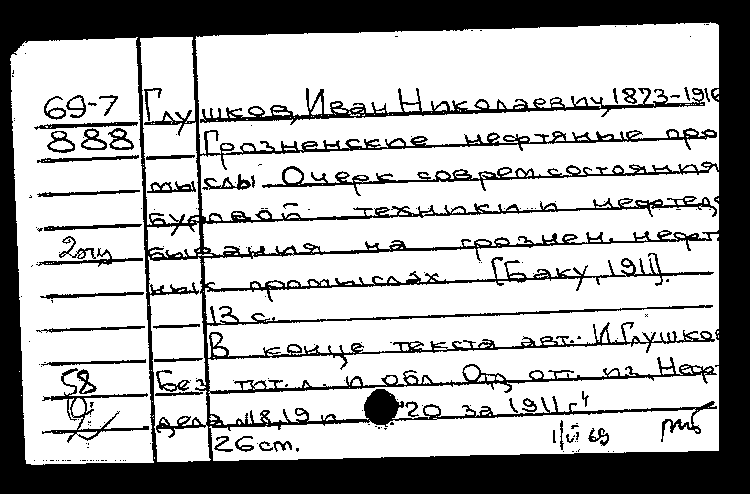 69-7 Глушков, Иван Николаевич, 1873-1916
888 Грозненские нефтяные про
мыслы. Очерк соврем. состояния
буровой техники и нефтед
2 отд бывания на грознен. нефт
ных промыслах. [Баку, 1911].
13 с.
В конце текста авт.: И. Глушков
58 Без тит. л. и обл. Отд. отт. из "Нефт
дела, №18, 19 и 20 за 1911 г."
26 см. 1/VI 69